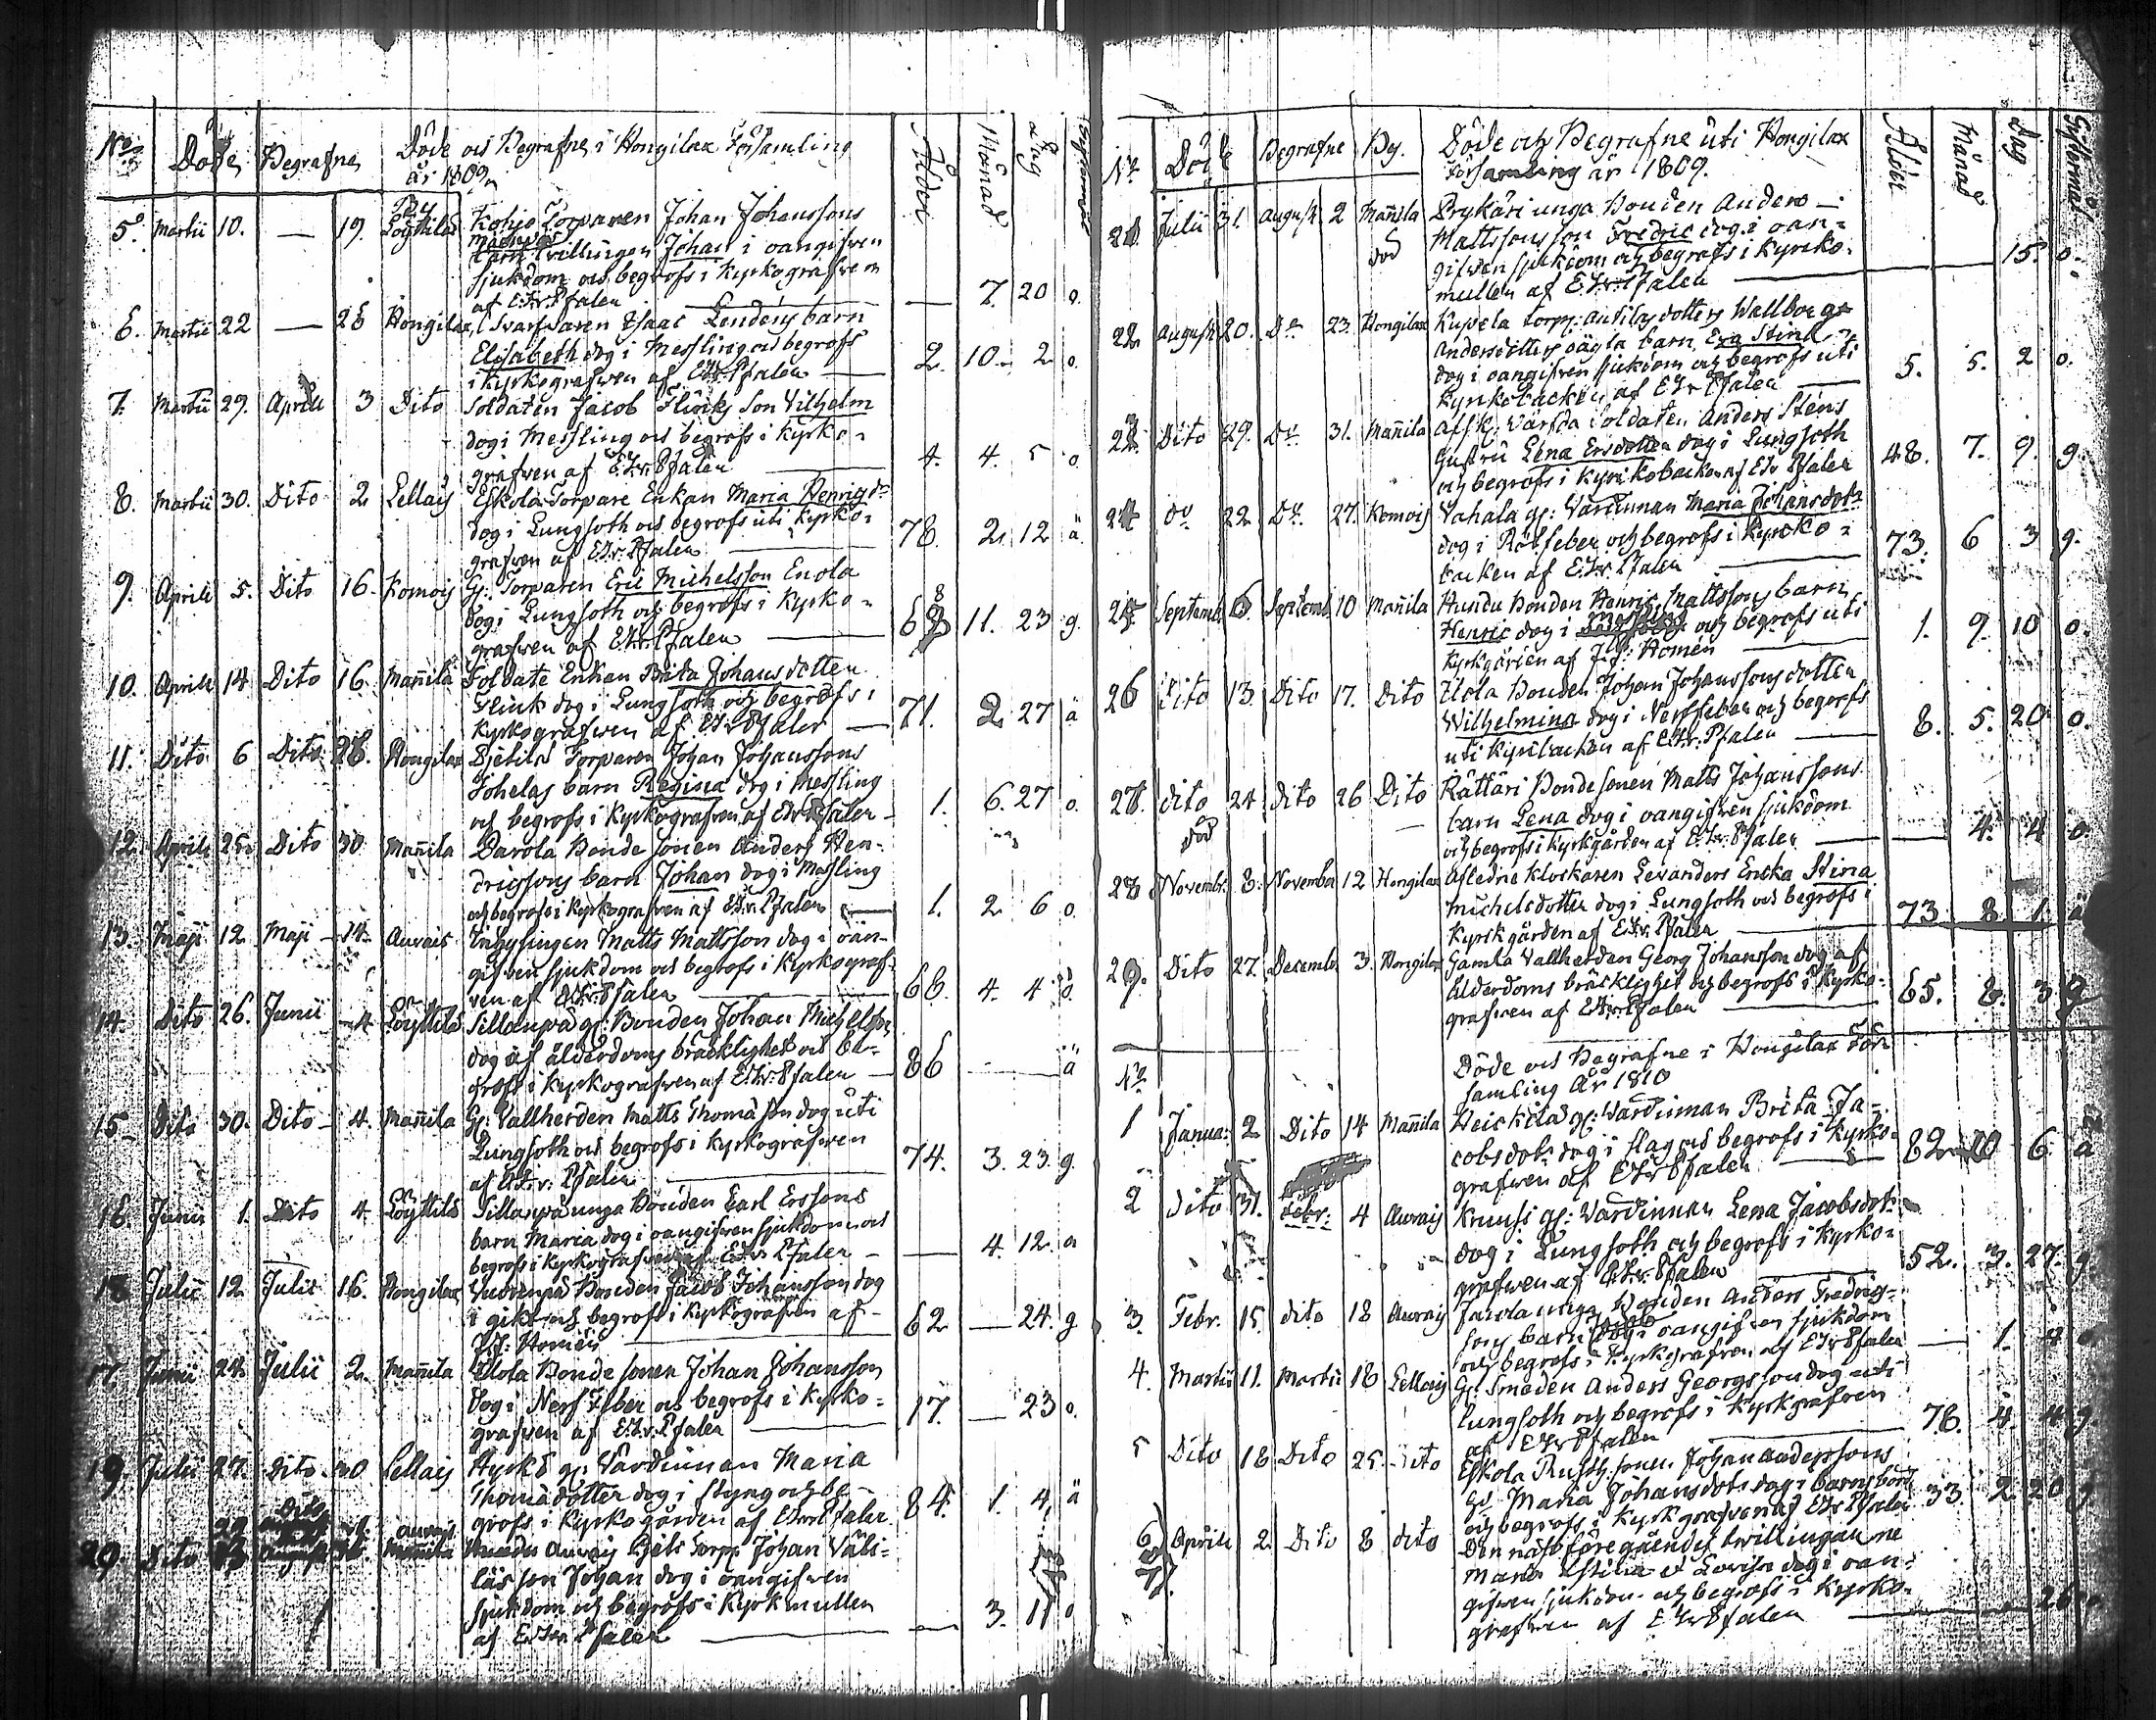 No Döde Begrafne Döde och Begrafne i Hongilax Församling Ålder Månad Dag
år 1809
By
5. Martii 10. — 19. Löyttilä Torparen Johan Johanssons
trillingen Johan i oangifven
sjukdom och begrofs i kyrkografven
af E. Tr. Pfaler — 7. 20 o.
6. Martii 22 — 26 Hongilax Svarfvaren Isaac Lendens barn
Elisabeth dog i Messling och begrofs
i kyrkografven af E. Tr. Pfaler 2. 10. 2 o
7. Martii 29. Aprill 3 Dito Soldaten Jacob Flinks Son Vilhelm
dog i Messling och begrofs i kyrko-
grafven af E. Tr. Pfaler 4. 4. 5 o
8. Martii 30. Dito 2 Lellais Eskola Torpare Enkan Maria Henrics dr
dog i Lungsoth och begrofs uti kyrko-
grafven af E. Tr. Pfaler 78. 2. 12 ä.
9. Aprill 5. Dito 16. Komois Gl. Torparen Eric Michelsson Enola
dog i Lungsoth och begrofs i kyrko-
grafven af E. Tr. Pfaler 68 11. 23 g.
10. Aprill 14 Dito 16 Mannila Soldate Enkan Brita Johansdotter
Flink dog i Lungsoth och begrofs i
kyrkografven af E. Tr. Pfaler 71. 2 27 ä
11. Dito 6 Dito 28. Hongilax Torparen Johan Johanssons
barn Regina dog i Messling
och begrofs i kyrkografven af E. Tr. Pfaler 1. 6. 27 o.
12. Aprill 25. Dito 30 Mannila Bonde sonen Anders Hen-
dricssons barn Johan dog i Messling
och begrofs i kyrkografven af E. Tr. Pfaler 1. 2 6 o.
13. Maji 12 Maji 14. Auvais Inhysingen Matts Mattsson dog i oan-
gifven sjukdom och begrofs i kyrkograf-
ven af E. Tr. Pfaler 66. 4. 4
14. Dito 26. Junii 4 Löyttilä Sillanpää gl: Bonden Johan Michelsson
dog af ålderdoms bräcklighet och be-
grofs i kyrkografven af E. Tr. Pfaler 86 — ä
15 Dito 30. Dito 4. Mannila Gl. Vallherden Matts Thomasson dog uti
Lungsoth och begrofs i kyrkografven
af E. Tr. Pfaler 74. 3. 23. g.
16. Junii 1. Dito 4. Löyttilä Sillanpää unga Bonden Carl Erssons
barn Maria dog i oangifven sjukdom och
begrofs i kyrkografven af E. Tr. Pfaler — 4. 12. o
18 Julii 12. Julii 16. Hongilax Bonden Jacob Johansson dog
i gikt och begrofs i kyrkografven af
Homén 62 — 24. g
17. Junii 24. Julii 2. Mannila Ilola Bonde sonen Johan Johansson
dog i Nerf feber och begrofs i kyrko-
grafven af E. Tr. Pfaler 17. — 23 o.
19. Julii 27. Dito 30 Lellais gl. Värdinnan Maria
Thomadotter dog i styng och be-
grofs i kyrkogården af E. Tr. Pfaler 84. 1. 4. ä
20. Dito Auvais Torp. Johan
son Johan dog i oangifven
sjukdom och begrofs i kyrkmullen
af E. Tr. Pfaler — 3. 11 o
No Döde Begrafne By. Döde och Begrafne uti Hongilax Ålder Månad Dag
Församling år 1809.
21. Julii 31. August 2 Mannila Prykäri unga Bonden Anders
Mattssons son Fredric dog i oan-
gifven sjukdom och begrofs i kyrko-
mullen af E. Tr. Pfaler 15. o.
22 August 20. Do 23. Hongilax Torp: dotters Wallborg
Andersdotters oägta barn Eva Stina
dog i oangifven sjukdom och begrofs uti
kyrkobacken af E. Tr. Pfaler 5. 5. 2 o.
23. Dito 29. Do 31. Mannila Soldaten Anders Stens
hustru Lena Ersdotter dog i Lungsoth
och begrofs i kyrkobacken af E. Tr. Pfaler 48. 7. 9. g.
24 Do 22 Do 27. Komois Vahala gl: Värdinnan Maria Johansdotr
dog i Rötfeber och begrofs i kyrko-
backen af E. Tr. Pfaler 73. 6 3 g.
25. Septemb. 6. Septemb. 10 Mannila Bonden Henric Mattssons barn
Henric dog i och begrofs uti
kyrkgården af Homén 1. 9. 10 o.
26 Dito 13. Dito 17. Dito Ilola Bonden Johan Johanssons dotter
Wilhelmina dog i Nerffeber och begrofs
uti kyrkbacken af E. Tr. Pfaler 8. 5. 20 o.
27. Dito 24 Dito 26 Dito Rättäri Bondesonen Matts Johanssons
barn Lena dog i oangifven sjukdom
och begrofs i kyrkgården af E. Tr. Pfaler — 4. 4 o
28 Novembr. 8. November 12 Hongilax Afledne klockaren Levanders Encka Stina
Michelsdotter dog i Lungsoth och begrofs i
kyrkgården af E. Tr. Pfaler 73 8 1. ä
29. Dito 27. Decembr 3. Hongilax Gamla Vallherden Georg Johansson dog af
ålderdoms bräcklighet och begrofs i kyrko-
grafven af E. Tr. Pfaler 65. 8. 3 g
Döde och Begrafne i Hongilax För-
samling År 1810
No
1 Januar: 2 Dito 14 Mannila Heickilä gl: Värdinnan Brita Ja-
cobsdotr dog i slag och begrofs i kyrko-
grafven af E. Tr. Pfaler 82 10 6. ä
2 Dito 31. Febr: 4 Auvais Knusi gl: Värdinnan Lena Jacobsdotr
dog i Lungsoth och begrofs i kyrko-
grafven af E. Tr. Pfaler 52. 3. 27. g
3. Febr. 15. Dito 18 Auvais unga Bonden Anders Fredrics-
sons barn dog i oangifven sjukdom
och begrofs i kyrkografven af E. Tr. Pfaler — 1. 4
4. Martii 11. Martii 18 Lellais Gl. Smeden Anders Georgsson dog uti
lungsoth och begrofs i kyrkgrafven
af E. Tr. Pfaler 78. 4. g
5 Dito 18 Dito 25. Dito Eskola Rusth. sonen Johan Anderssons
Maria Johansdotr dog i barnsbörd
och begrofs i kyrkgrafven af E. Tr. Pfaler 33. 2 20 g
6 Aprill 2. Dito 8 Dito Den näst föregåendes trillingarne
7. Maria Stina et Lovisa dog i oan-
gifven sjukdom och begrofs i kyrko-
grafven af E. Tr. Pfaler 26